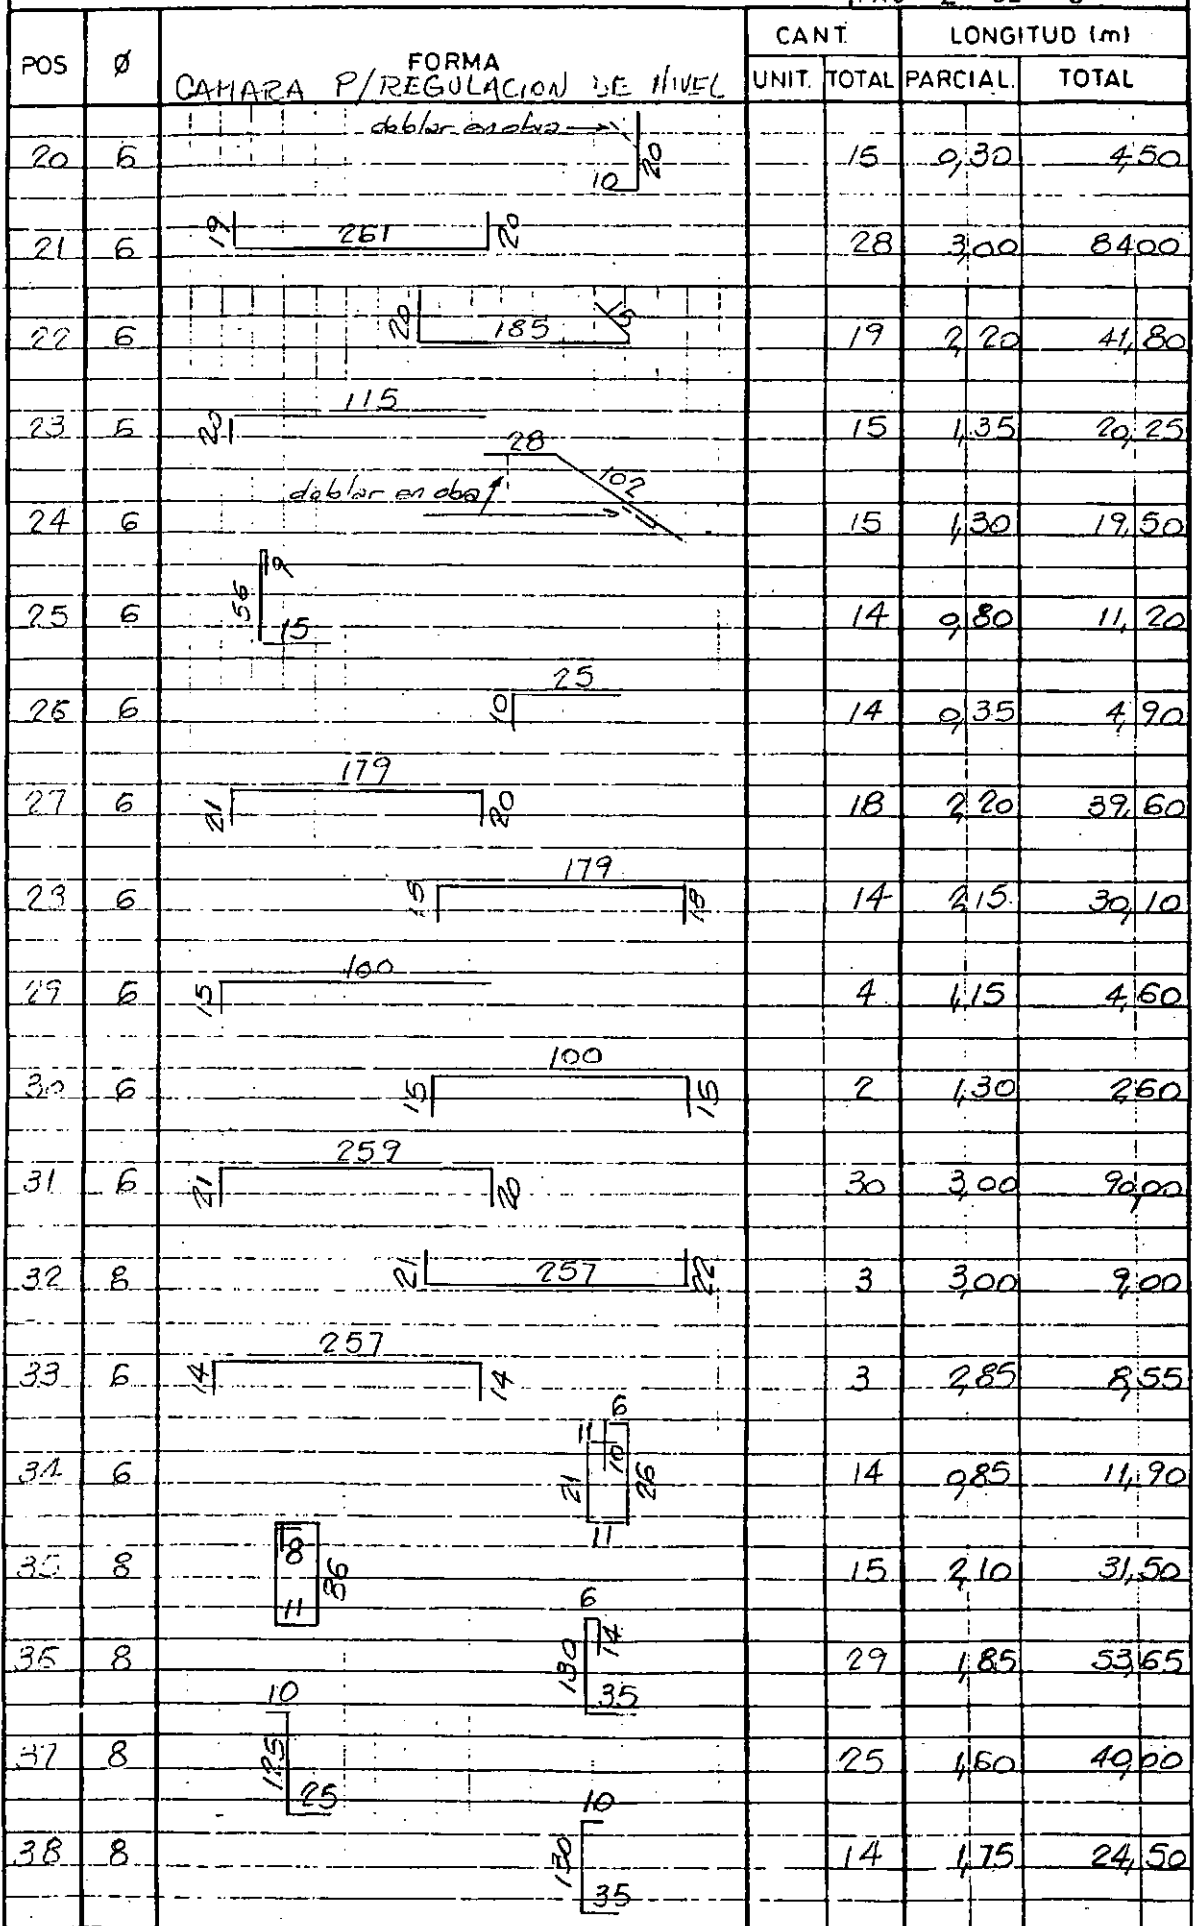 CANT. LONGITUD (m)
POS Ø FORMA
CAMARA P/REGULACION DE NIVEL
UNIT. TOTAL PARCIAL. TOTAL
doblar en obra
20 6 10 20 15 0,30 4,50
21 6 19 261 20 28 3,00 84,00
22 6 20 185 15 19 2,20 41,80
23 6 20 115 15 1,35 20,25
28
102
doblar en oba
24 6 15 1,30 19,50
25 6 56 9 15 14 0,80 11,20
26 6 10 25 14 0,35 4,90
27 6 21 179 20 18 2,20 39,60
23 6 15 179 18 14 2,15 30,10
29 6 15 100 4 1,15 4,60
30 6 15 100 15 2 1,30 2,60
31 6 21 259 20 30 3,00 90,00
32 8 21 257 22 3 3,00 9,00
33 6 14 257 14 3 2,85 8,55
6
11 10
34 6 21 26 14 0,85 11,90
11
35 8 8 86 11 15 2,10 31,50
6
36 8 130 14 35 29 1,85 53,65
10
37 8 125 25 25 1,60 40,00
10
38 8 130 35 14 1,75 24,50